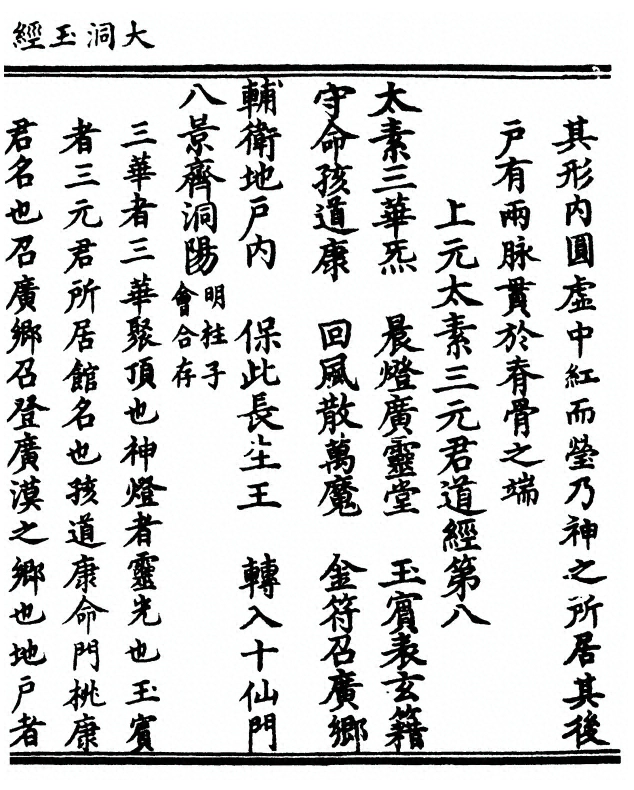 大洞玉經
其形內圓虛中紅而瑩乃神之所居其後
户有兩脉貫於脊骨之端
上元太素三元君道經第八
太素三華炁 晨燈廣靈堂 玉賓表玄籍
守命孩道康 回風散萬魔 金符召廣鄉
輔衛地户內 保此長生王 轉入十仙門
八景齊洞陽 明柱子會合存
三華者三華聚頂也神燈者靈光也玉賓
者三元君所居館名也孩道康命門桃康
君名也召廣鄉召登廣漠之鄉也地户者